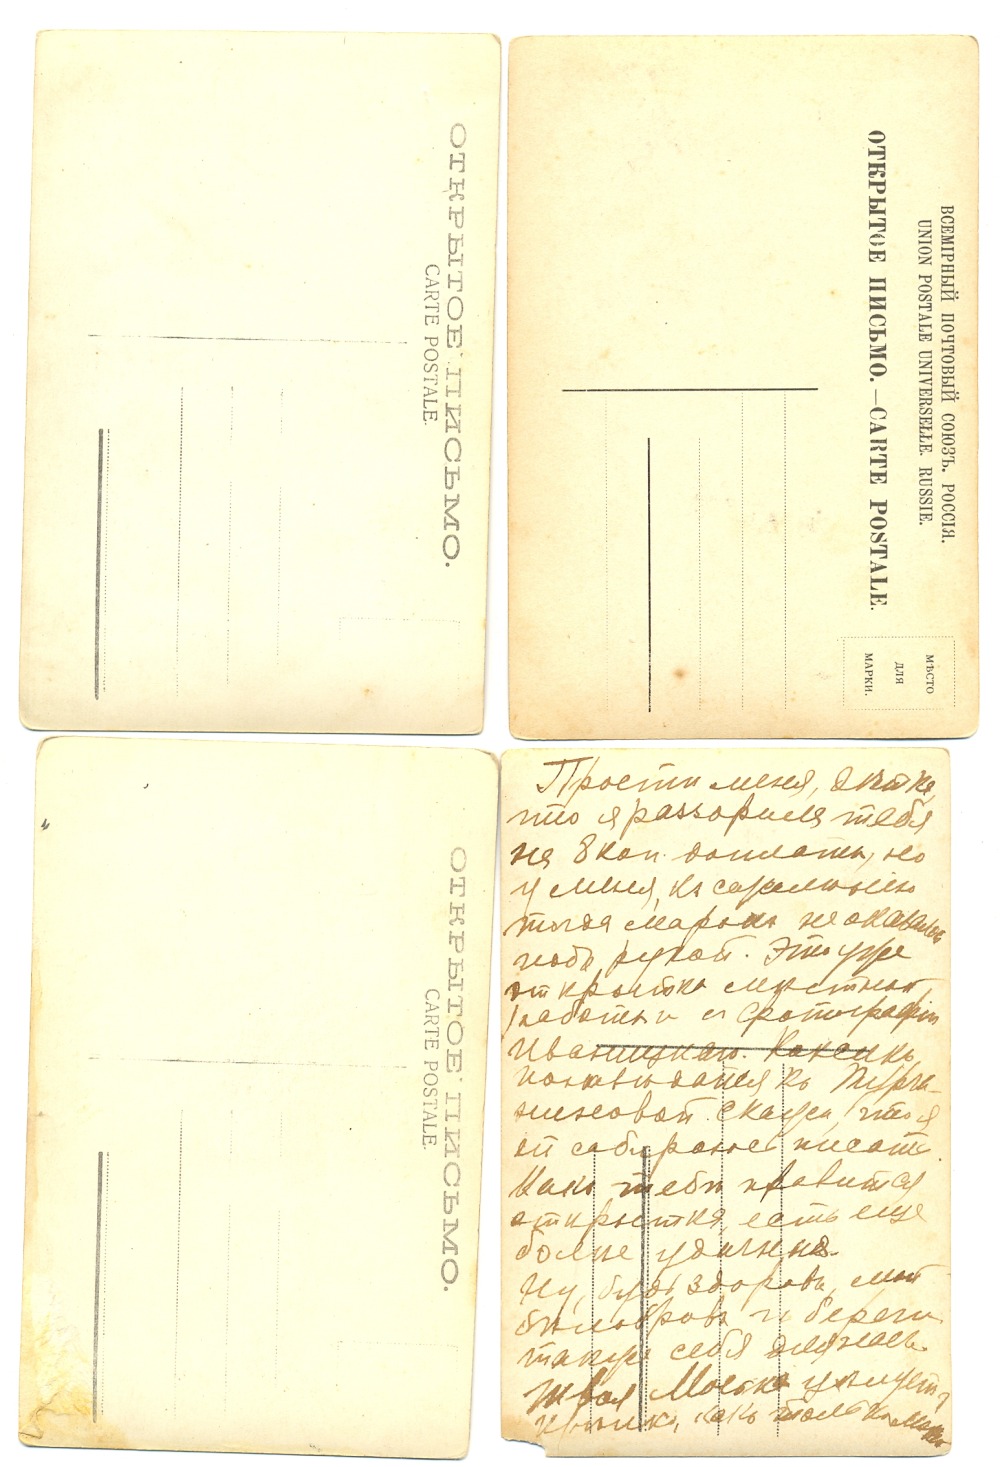 ОТКРЫТОЕ ПИСЬМО.
CARTE POSTALE.
ВСЕМІРНЫЙ ПОЧТОВЫЙ СОЮЗЪ. РОССІЯ.
UNION POSTALE UNIVERSELLE. RUSSIE.
ОТКРЫТОЕ ПИСЬМО.—CARTE POSTALE.
МѢСТО
ДЛЯ
МАРКИ.
ОТКРЫТОЕ ПИСЬМО.
CARTE POSTALE.
Прости меня, дѣтка,
что я раззорила тебя
на 8 коп. доплаты, но
у меня, къ сожалѣнію
тогда марокъ не оказалось
подъ рукой. Это уже
открытка мѣстной
работы и фотографіи
Иваницкаго.
ской. Скажи, что я
ей собираюсь писать.
Какъ тебѣ нравится
открытка, есть еще
болѣе удачныя.
Ну, будь здоровъ, мой
и береги
также себя для насъ.
Твоя
какъ только